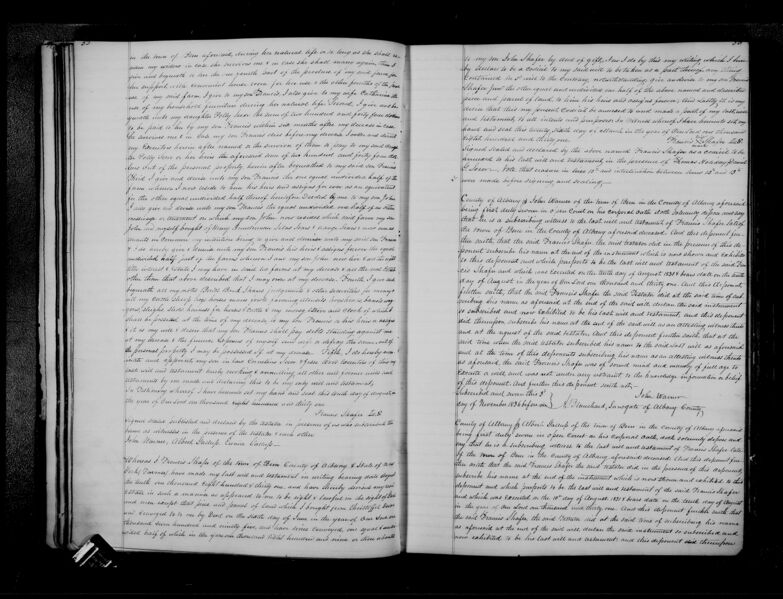 53
in the town of Bern aforesaid, during her natural life or so long as she shall re-
main my widow in case she survives me & in case she shall marry again, then I
give and bequeath to her the one fourth part of the produce of my said farm for
her support
of my said farm I give to my son Francis. I also give to my wife Catharina the
use of my household furniture during her natural life. Second, I give and be-
queath unto my daughter Polly Sever the sum of two hundred and forty four dollars
to be paid to her by my son Francis within six months after my decease in case
he survives me & in case my son Francis dies before my decease I order and direct
my Executors herein after named or the survivor of them to pay to my said daugh-
ter Polly Sever or her heirs the aforesaid sum of two hundred and forty four dol-
lars out of the personal property herein after bequeathed to my said son Francis
Third I give and devise unto my son Francis the one equal undivided half of the
farm whereon I now reside to him his heirs and assigns for ever as an equivalent
for the other equal undivided half thereof heretofore Deeded by me to my son John
I also give and devise unto my son Francis the equal undivided one half of
on which my son John now resides which said farm my son
John and myself bought of Henry
undivided half part of the farm whereon I and my son John now live and all
title interest & claim I may have in and to
other than that above described that I may own at my decease. Fourth, I give and
bequeath all my notes Bonds Book Debts judgments & other securities for money
all my cattle Sheep hogs horses mares
gons, sleighs sleds harness for horses & cattle & my money
shall be possessed at the time of my decease to my son Francis to his heirs & assigns
& it is my will & desire that my son Francis shall pay debts standing against me
at my decease & the funeral expenses of myself and wife
the personal property I may be possessed of at my decease. Fifth, I do hereby nom-
inate and appoint my son in law Cornelius Sever & Executors of this my
last will and testament hereby revoking & annulling all other and former wills and
testaments by me made and declaring this to be my only will and testament.
In Testimony whereof I have hereunto set my hand and seal this tenth day of August in
the year of Our Lord one thousand eight hundred and thirty one
Francis Shafer L.S
Signed Sealed published and declared by the testator in presence of us who subscribed the
same as witnesses in the presence of the testator & each other
John Warner, Albert Gallup
Whereas I Francis Shafer of the town of Bern County of Albany & State of New
York, Farmer, have made my last will and testament in writing bearing date August
the tenth one thousand eight hundred & thirty one, and have thereby devised my real
estate in such a manner as appeared to me to be right & lawful in the sight of God
and man except that piece and parcel of land which I bought from Christopher
and conveyed to me by Deed on the sixth day of June in the year of Our Lord one
thousand seven hundred and ninety five, and have since conveyed one equal & undi-
vided half of which in the year one thousand eight hundred and nine or there abouts
to my son John Shafer by deed of gift. Now I do by this my writing which I here-
by declare to be a codicil to my said will to be taken as a part thereof any thing
contained in it to the contrary notwithstanding give and devise to my son Francis
Shafer Junr the other equal and undivided one half of the above named and described
piece and parcel of land, to him his heirs and assigns forever. And lastly it is my
desire that this my present codicil be annexed to and made a part of my last will
and testament to all intents and purposes. In Witness whereof I have hereunto set my
hand and seal this twenty sixth day of March in the year of Our Lord one thousand
eight hundred and thirty one
Francis Shafer L.S
Signed sealed and declared by the above named Francis Shafer as a codicil to be
annexed to his last will and testament in the presence of Thomas Holaday, Daniel
Sever. Note that erasure in line 11th and interlineation between lines 12th and 13th
were made before signing and sealing
County of Albany ss John Warner of the town of Bern in the County of Albany aforesaid
being first duly sworn in open Court on his Corporal oath doth solemnly depose and say
that he is a subscribing witness to the last will and testament of Francis Shafer late
of the town of Bern in the County of Albany aforesaid deceased. And this deponent fur-
ther saith, that the said Francis Shafer the said testator did in the presence of this de-
ponent subscribe his name at the end of the instrument which is now shown and exhibited to
this deponent which purports to be the last will and testament of the said Fran-
cis Shafer and which was executed on the tenth day of August 1831 & bears date on the tenth
day of August in the year of Our Lord one thousand and thirty one. And this deponent
further saith, that the said Francis Shafer the said Testator did at the said time of sub-
scribing his name as aforesaid at the end of the said will, declare the said instrument
so subscribed and now exhibited to be his last will and testament, and this deponent
did thereupon subscribe his name at the end of the said will as an attesting witness thereto
and at the request of the said testator. And this deponent further saith that at the
said time when the said testator subscribed his name to the said last will as aforesaid
and at the time of this deponents subscribing his name as an attesting witness thereto
as aforesaid, the said Francis Shafer was of sound mind and memory of full age to
execute a will and was not under any restraint to the knowledge, information or belief
of this deponent. And further this deponent saith not.
Subscribed and sworn this 3d
day of November 1836 before me
John Warner
A. Blanchard, Surrogate of Albany County
County of Albany ss Albert Gallup of the town of Bern in the County of Albany aforesaid
being first duly sworn in Open Court on his Corporal oath, doth solemnly depose and
say that he is a subscribing witness to the last will and testament of Francis Shafer late
of the town of Bern in the County of Albany aforesaid deceased. And this deponent fur-
ther saith that the said Francis Shafer the said testator did in the presence of this deponent,
subscribe his name at the end of the instrument which is now shown and exhibited to this
deponent and which purports to be the last will and testament of the said Francis Shafer
and which was executed on the 10th day of August 1831 & bears date on the tenth day of August
in the year of Our Lord one thousand and thirty one. And this deponent further saith that
the said Francis Shafer the said Testator did at the said time of subscribing his name
as aforesaid at the end of the said will declare the said instrument so subscribed and
now exhibited to be his last will and testament and this deponent did thereupon